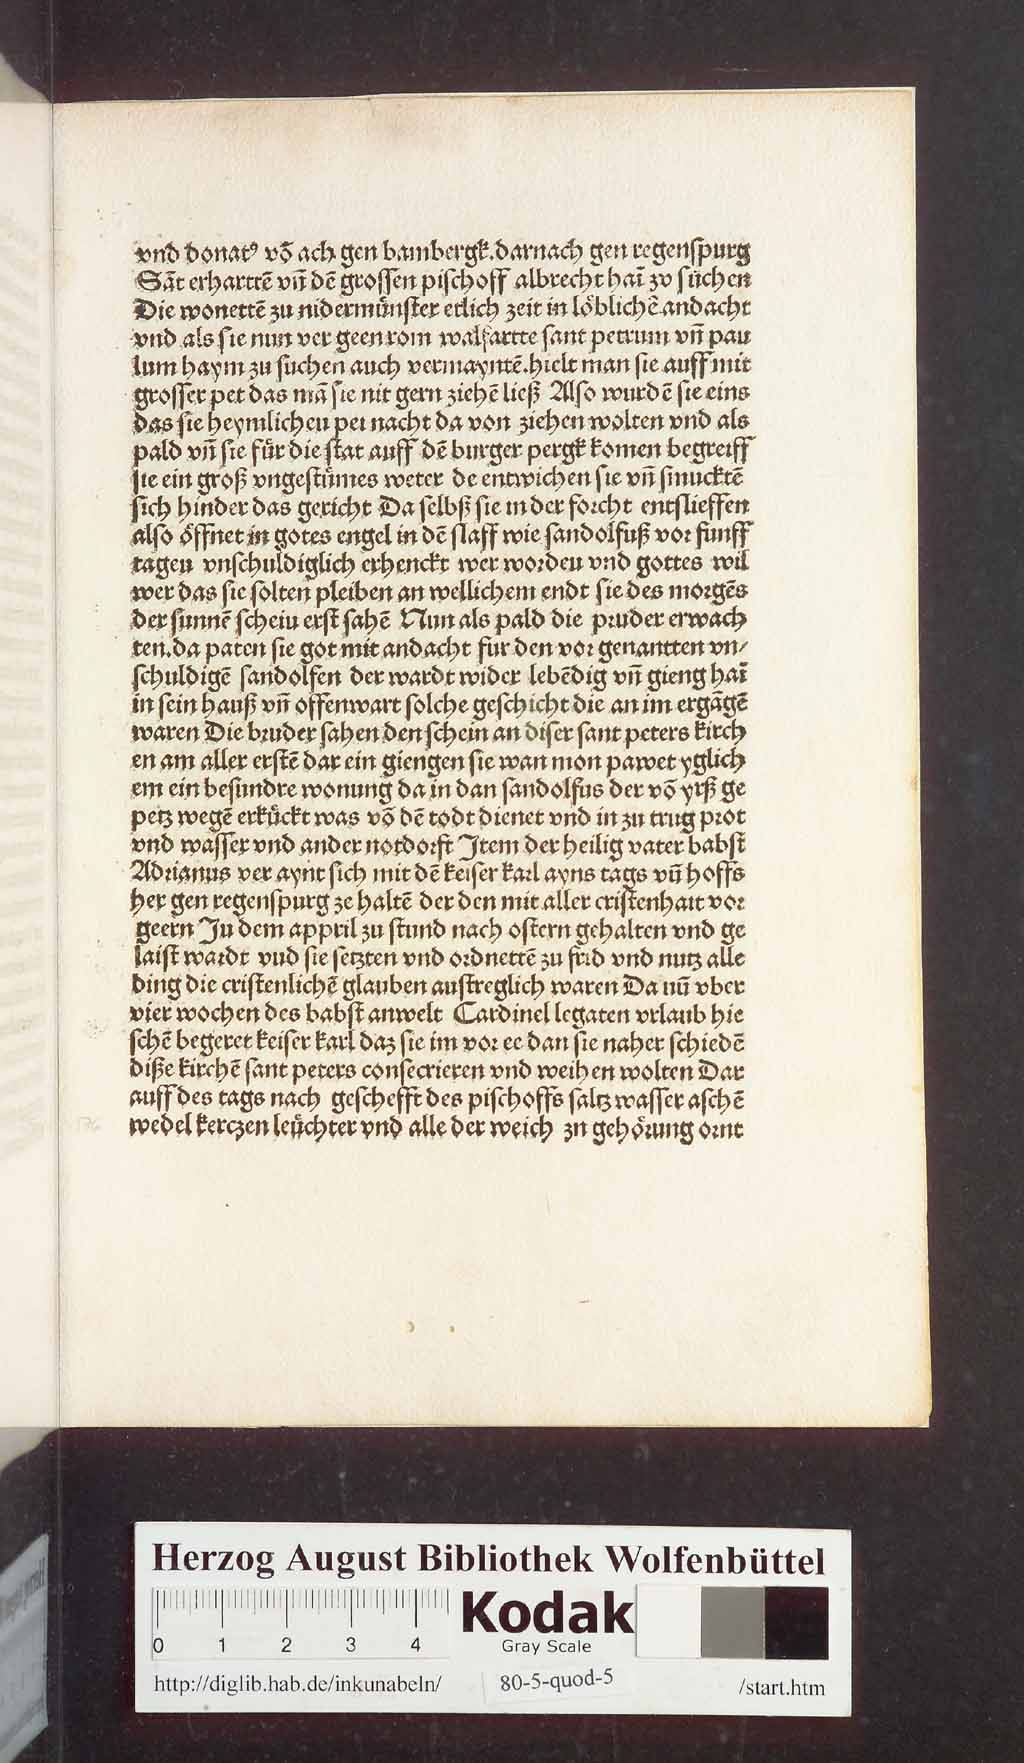 vnd donatꝰ võ ach gen bambergk. darnach gen regenspurg
Sãt erhartẽ vñ dẽ grossen pischoff albrecht haĩ zv sůchen
Die wonettẽ zu nidermu̇nster etlich zeit in lo̊blichẽ andacht
vnd als sie nun ver geen rom walfartte sant petrum vñ pau
lum haym zu suchen auch vermayntẽ. hielt man sie auff mit
grosser pet das mã sie nit gern ziehẽ ließ Also wurdẽ sie eins
das sie heymlicheu pei nacht da von ziehen wolten vnd als
pald vñ sie fu̇r die stat auff dẽ burger pergk komen begreiff
sie ein groß vngestu̇mes weter de entwichen sie vñ smucktẽ
sich hinder das gericht Da selbß sie in der forcht entslieffen
also o̊ffnet in gotes engel in dẽ slaff wie sandolfuß vor funff
tageu vnschuldiglich erhenckt wer wordeu vnd gottes wil
wer das sie solten pleiben an wellichem endt sie des morgẽs
der sunnẽ scheiu erst sahẽ Nun als pald die pruder erwach
ten. da paten sie got mit andacht fur den vor genantten vn/
schuldigẽ sandolfen der wardt wider lebẽdig vñ gieng haĩ
in sein hauß vñ offenwart solche geschicht die an im ergãgẽ
waren Die bruder sahen den schein an diser sant peters kirch
en am aller erstẽ dar ein giengen sie wan mon pawet yglich
em ein besundre wonung da in dan sandolfus der võ yrß ge
petz wegẽ erku̇ckt was võ dẽ todt dienet vnd in zu trug prot
vnd wasser vnd ander notdorft Item der heilig vater babst
Adrianus ver aynt sich mit dẽ keiser karl ayns tags vñ hoffs
her gen regenspurg ze haltẽ der den mit aller cristenhait vor
geern Ju dem appril zu stund nach ostern gehalten vnd ge
laist wardt vud sie setzten vnd ordnettẽ zu frid vnd nutz alle
ding die cristenlichẽ glauben austreglich waren Da uñ vber
vier wochen des babst anwelt Cardinel legaten vrlaub hie
schẽ begeret keiser karl daz sie im vor ee dan sie naher schiedẽ
diße kirchẽ sant peters consecrieren vnd weihen wolten Dar
auff des tags nach geschefft des pischoffs saltz wasser aschẽ
wedel kerczen leu̇chter vnd alle der weich zn geho̊rung ornt
Herzog August Bibliothek Wolfenbüttel
0 1 2 3 4
Kodak
Gray Scale
http://diglib.hab.de/inkunabeln/ 80-5-quod-5 /start.htm